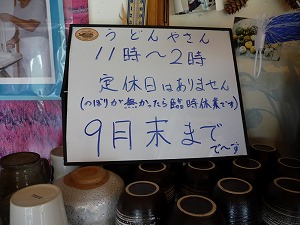 うどんやさん
11時〜2時
定休日はありません
(のぼりが無かったら臨時休業です)
9月末まで
で〜す